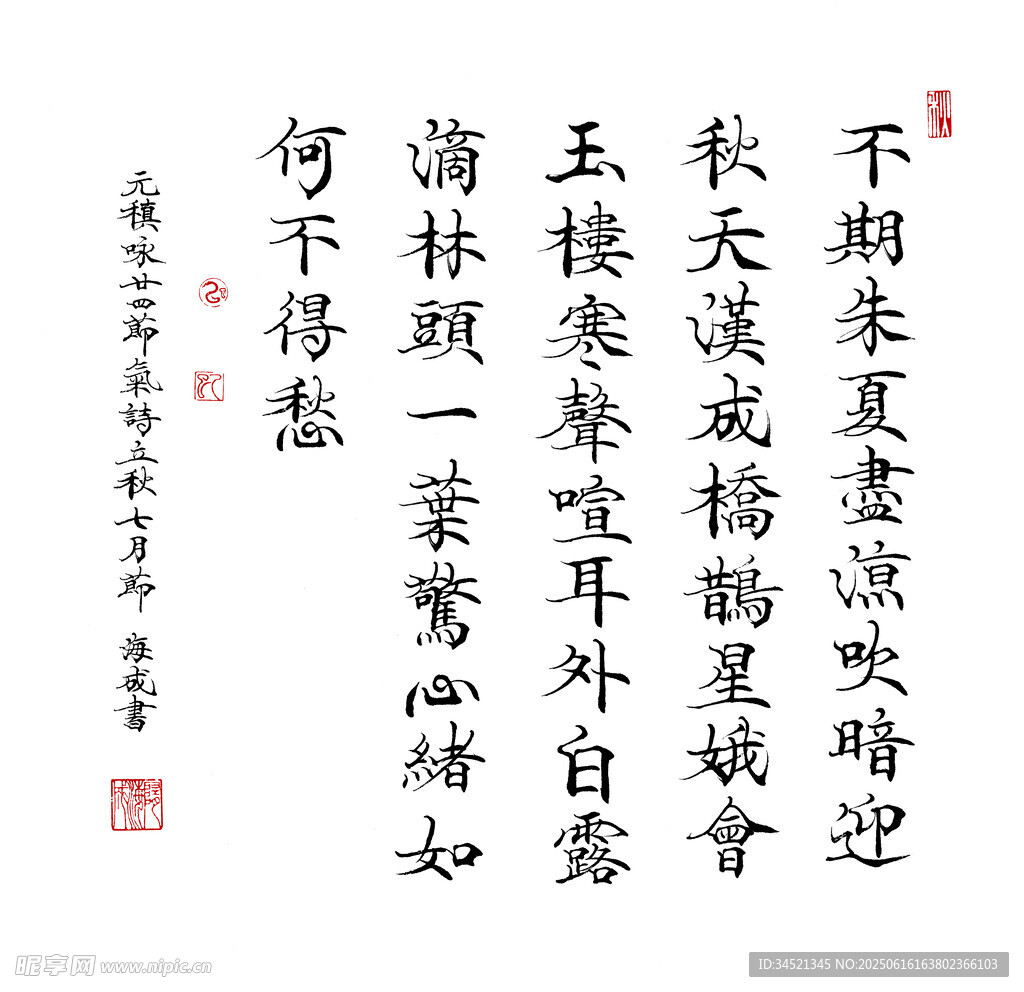 不期朱夏盡涼吹暗迎
秋天漢成橋鵲星娥會
玉樓寒聲喧耳外白露
滴林頭一葉驚心緒如
何不得愁
元稹咏廿四節氣詩立秋七月節 海成書
昵享网 www.nipic.cn
ID:34521345 NO:20250616163802366103